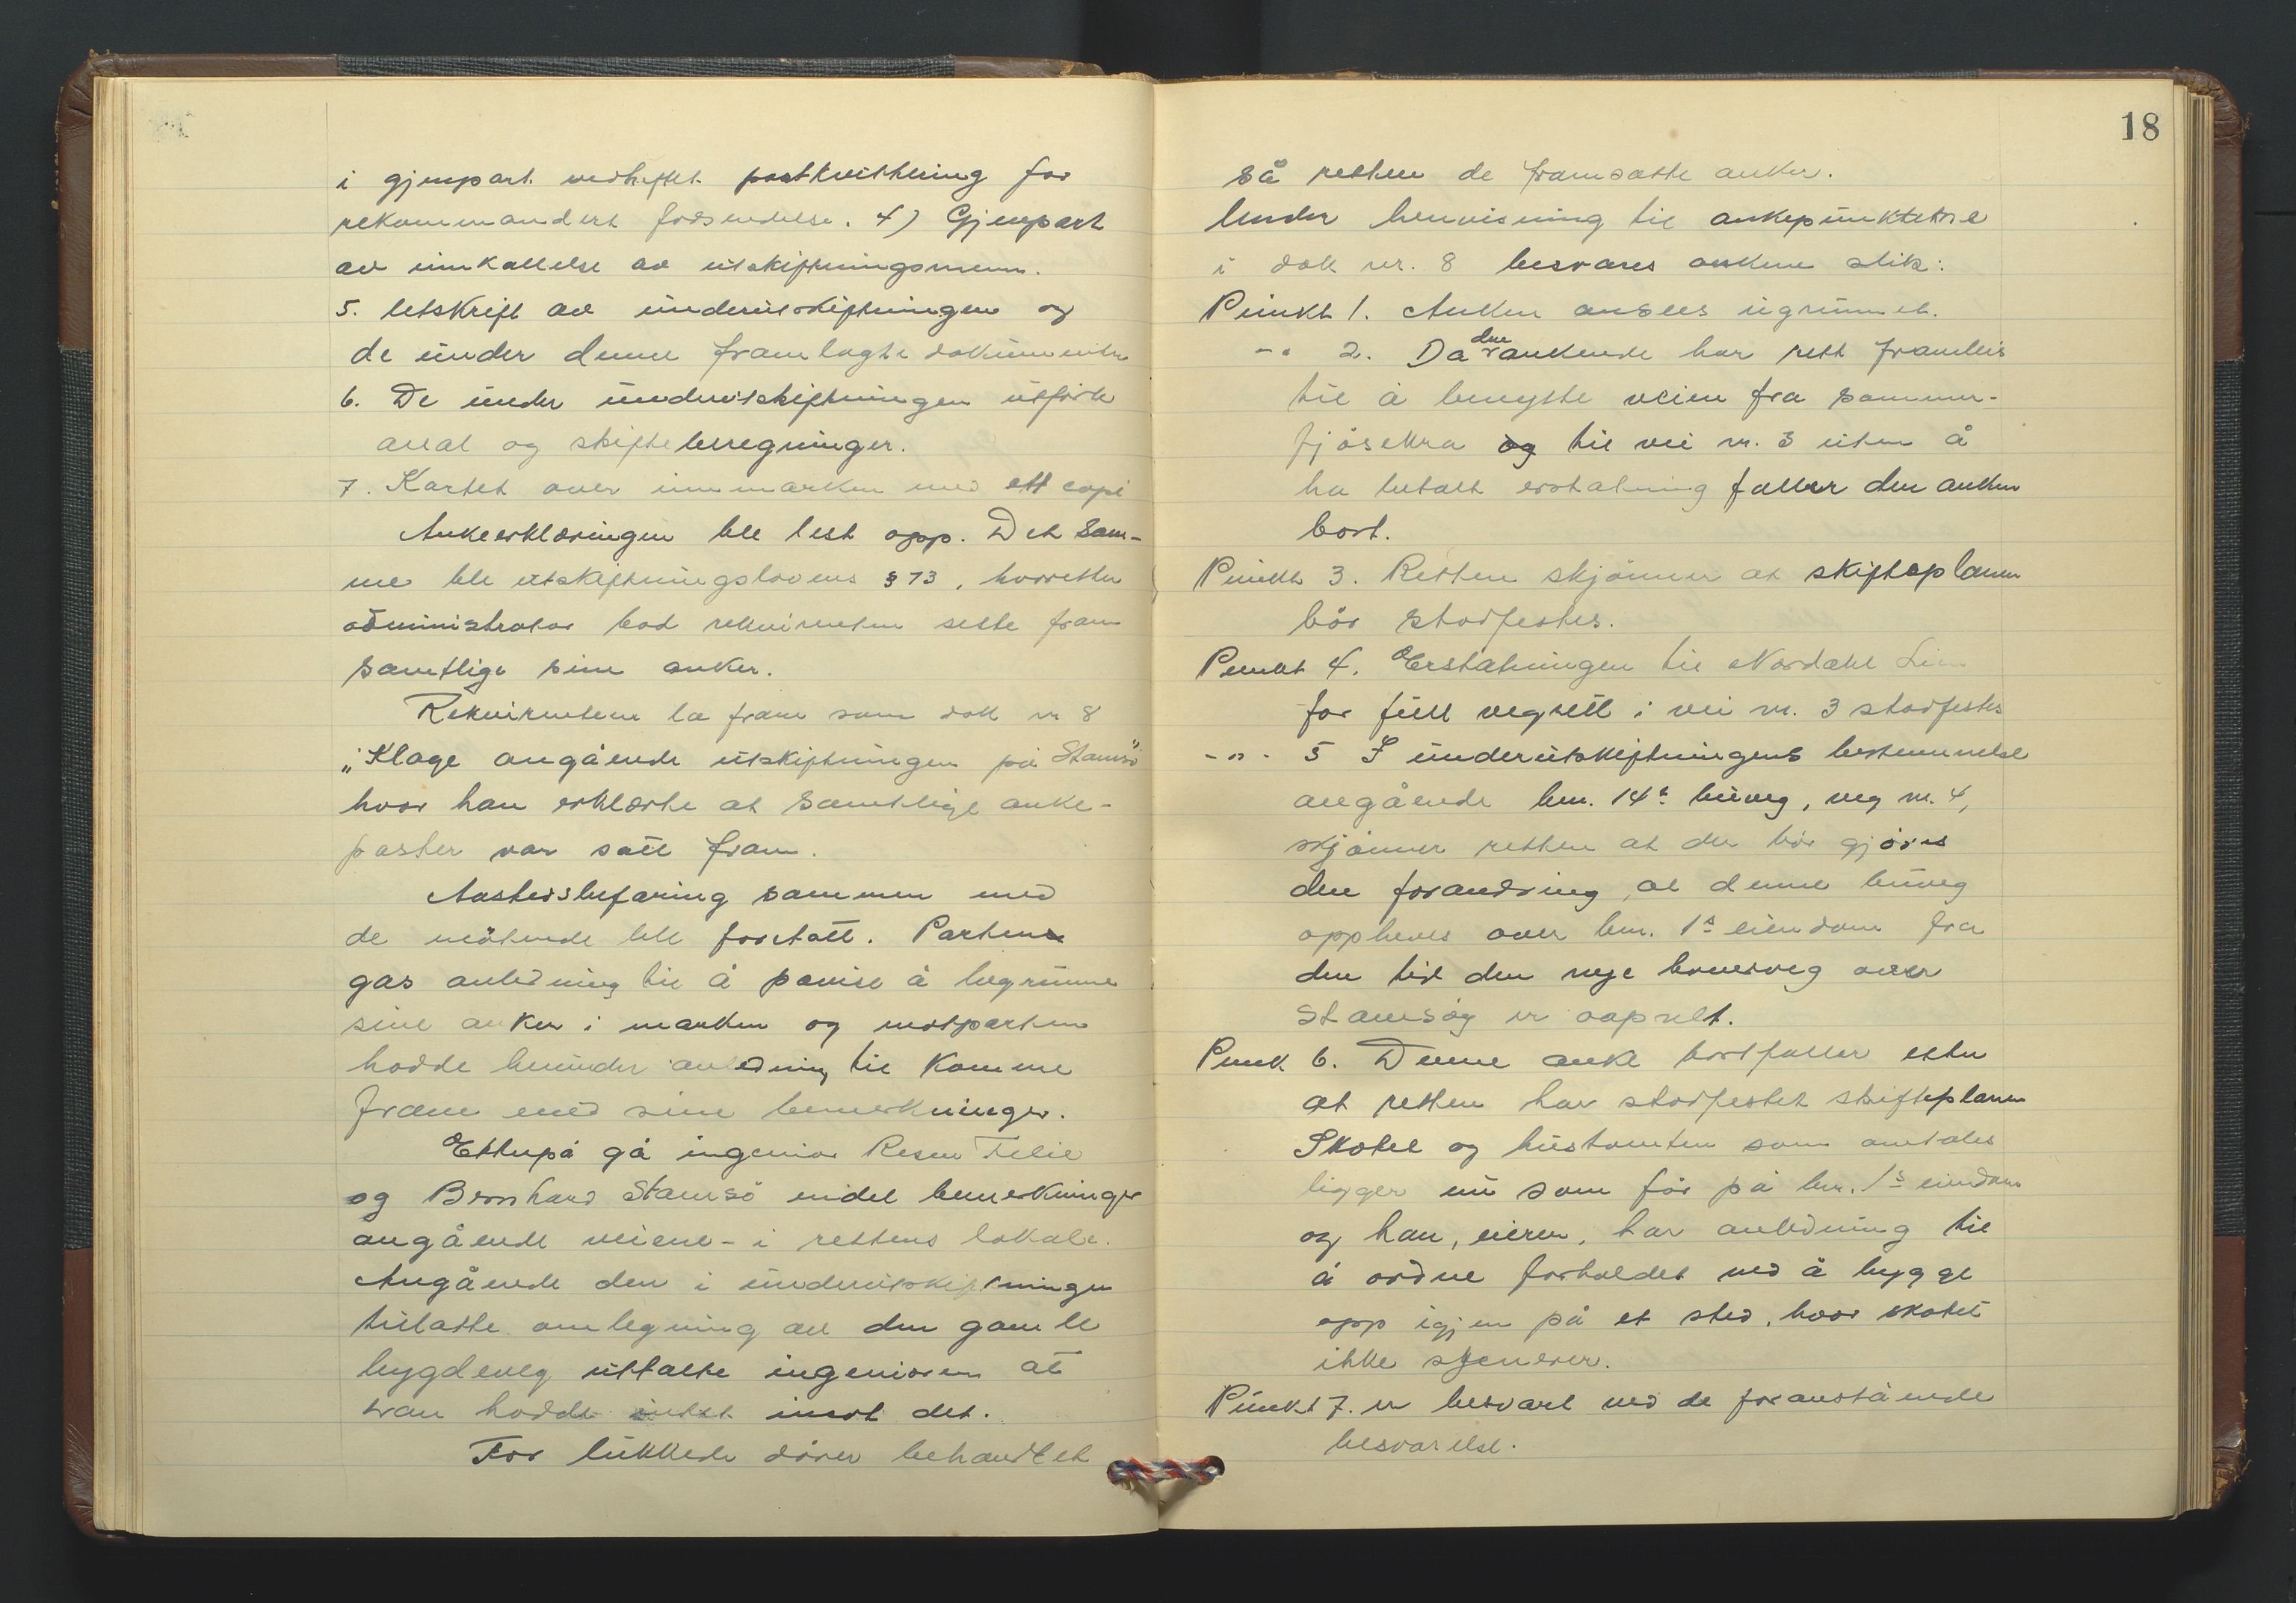 i gjenpart vedheftet postkvittering for
rekommandert forsendelse. 4) Gjenpart
av innkallelse av utskiftningsmenn.
5. Utskrift av underutskiftningen og
de under denne framlagte dokumenter
6. De under underutskiftningen utførte
areal og skifteberegninger.
7. Kartet over innmarken med ett copi
Ankeerklæringen ble lest opp. Det sam-
me ble utskiftningslovens § 73, hvoretter
administrator bad rekvirenten sette fram
samtlige sine anker.
Rekvirenten la fram som dok nr 8
„Klage angående utskiftningen på Stamsö"
hvor han erklærte at samtlige anke-
poster var satt fram.
Aastedsbefaring sammen med
de møtende ble foretatt. Partene
gas anledning til å påvise å begrunne
sine anker i marken og motparten
hadde herunder anledning til komme
fram med sine bemerkninger.
Etterpå ga ingeniør Resen Fellie
og Bernhard Stamsö endel bemerkninger
angående veiene - i rettens lokale.
Angående den i underutskiftningen
tillatte omlegning av den gamle
bygdeveg uttalte ingeniøren at
han hadde intet imot det.
For lukkede dører behandlet
18
så retten de framsatte anker.
Under henvisning til ankepunktene
i dok nr. 8 besvares ankene slik:
Punkt 1. Anken ansees ugrunnet.
-"- 2. Da den ankende har rett framleis
til å benytte veien fra sommer-
fjösekra og til vei nr. 3 uten å
ha betalt erstatning faller den anken
bort.
Punkt 3. Retten skjønner at skifteplanen
bör stadfestes.
Punkt 4. Erstatningen til Nordahl Lien
for full vegrett i vei nr. 3 stadfestes
-"- 5 I underutskiftningens bestemmelse
angående bnr. 14s buveg, veg nr. 4,
skjønner retten at der bör gjöres
den forandring, at denne buveg
oppheves over bnr. 1s eiendom fra
den tid den nye hovedveg over
Stamsöy er oapnet.
Punk 6. Denne anke bortfaller etter
at retten har stadfestet skifteplanen
Skotel og hustomten som omtales
ligger nu som för på bnr. 1s eiendom
og han, eieren, har anledning til
å ordne forholdet ved å bygge
opp igjen på et sted, hvor skotet
ikke sjenerer.
Punkt 7. er besvart ved de foranstående
besvarelse.